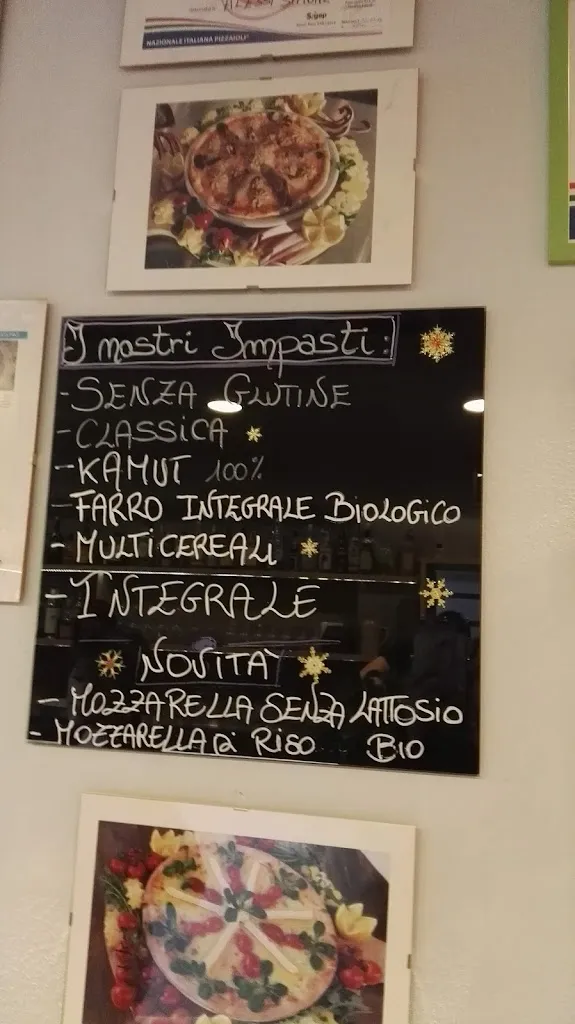 NAZIONALE ITALIANA PIZZAIOLI
I nostri Impasti:
- SENZA GLUTINE
- CLASSICA
- KAMUT 100%
- FARRO INTEGRALE BIOLOGICO
- MULTICEREALI
- INTEGRALE
NOVITA'
- MOZZARELLA SENZA LATTOSIO
- MOZZARELLA di RISO BIO